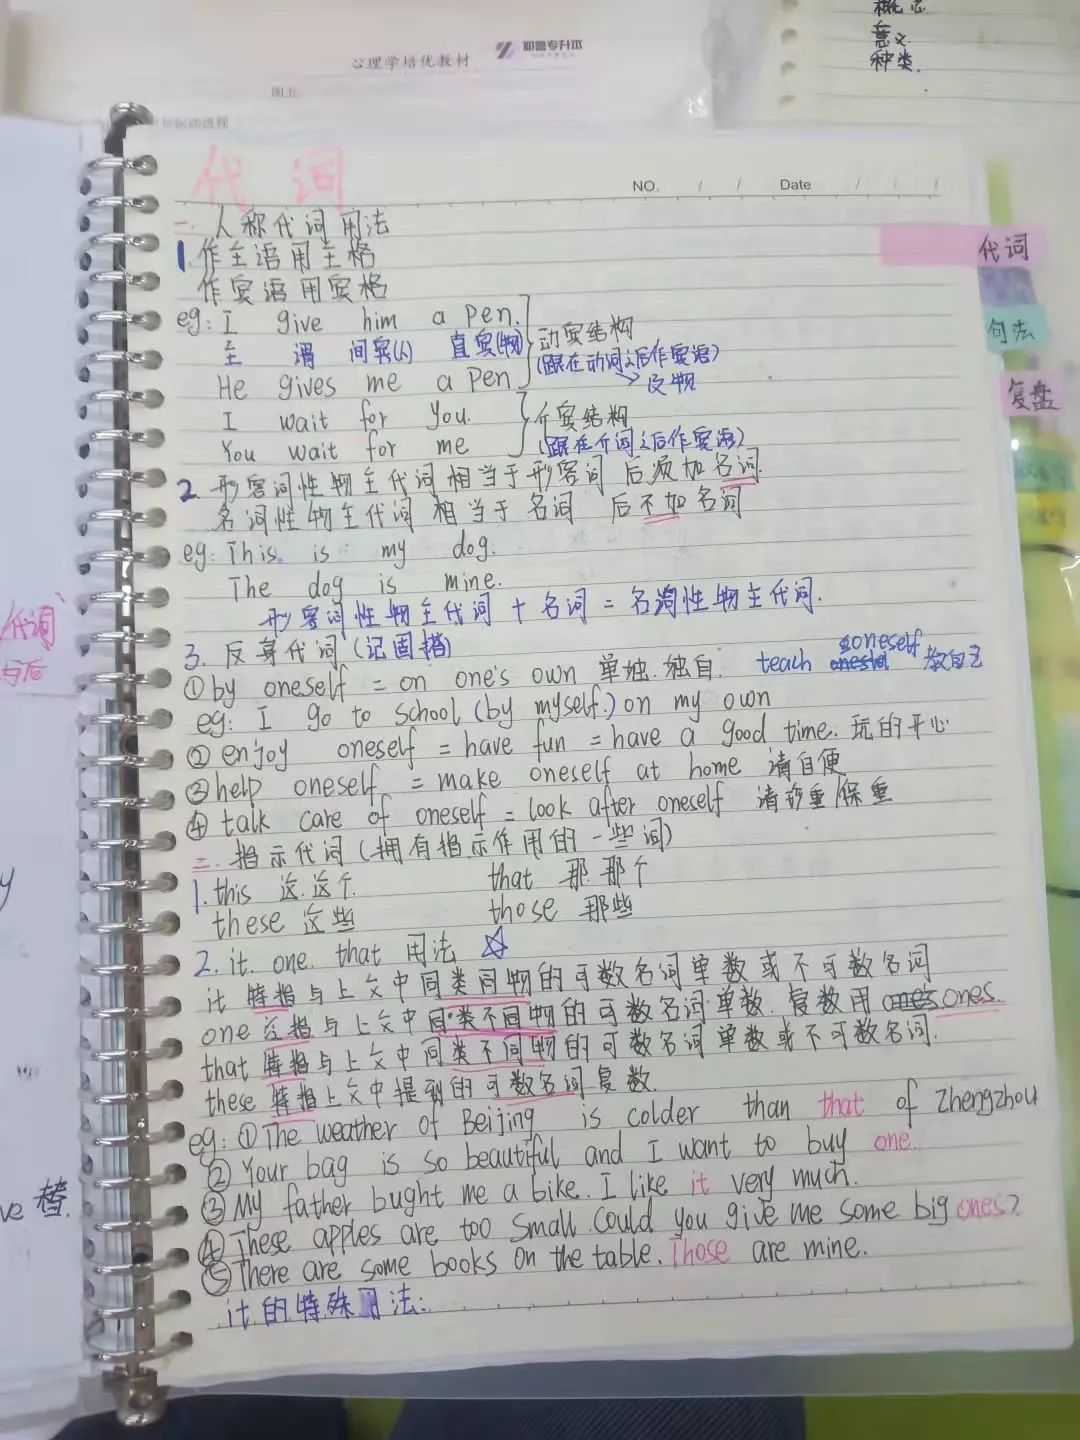 概念
意义
种类.
心理学培优教材
专升本
代词
NO. / / Date / / /
一. 人称代词用法
1.作主语用主格
作宾语用宾格
eg: I give him a pen.
主 谓 间宾(人) 直宾(物)
He gives me a pen
动宾结构
(跟在动词之后作宾语)
I wait for you.
You wait for me
介宾结构
(跟在介词之后作宾语)
2. 形容词性物主代词相当于形容词 后须加名词
名词性物主代词 相当于名词 后不加名词
eg: This is my dog.
The dog is mine.
形容词性物主代词 + 名词 = 名词性物主代词.
3. 反身代词(记固搭)
①by oneself = on one's own 单独.独自. teach oneself 教自己
eg: I go to school (by myself.) on my own
② enjoy oneself = have fun = have a good time. 玩的开心
③help oneself = make oneself at home 请自便
④ talk care of oneself = look after oneself 请珍重/保重
二. 指示代词(拥有指示作用的一些词)
1.this 这.这个 that 那.那个
these 这些 those 那些
2. it. one. that 用法 ☆
it 特指与上文中同类同物的可数名词单数或不可数名词
one 泛指与上文中同类不同物的可数名词单数. 复数用 ones.
that 特指与上文中同类不同物的可数名词单数或不可数名词.
these 特指上文中提到的可数名词复数.
eg: ①The weather of Beijing is colder than that of Zhengzhou
② Your bag is so beautiful and I want to buy one.
③ My father bught me a bike. I like it very much.
④ These apples are too small. Could you give me some big ones?
⑤There are some books on the table. Those are mine.
it 的特殊用法:
代词
句法
复盘
代词
与后
y
ve 替.